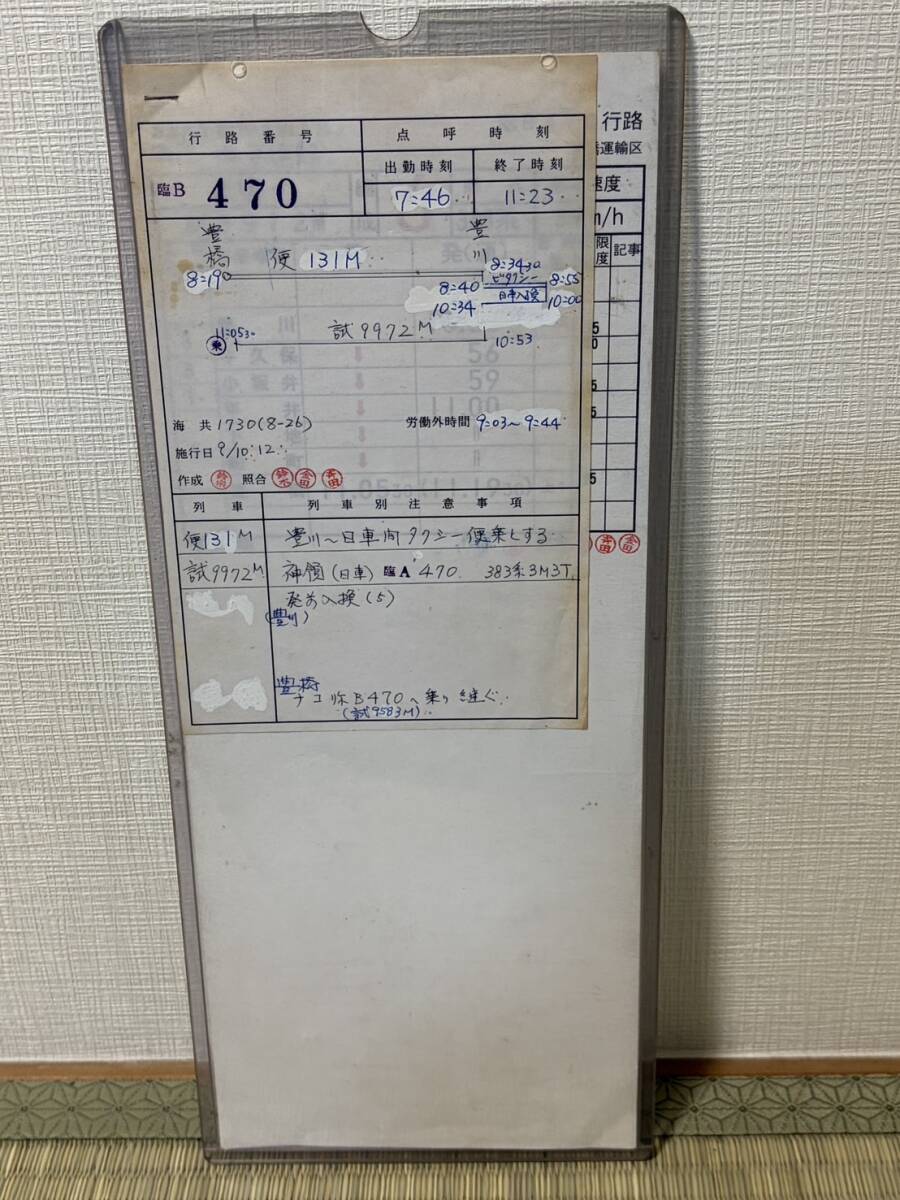 行路番号
点呼時刻
出勤時刻
終了時刻
臨B 470
7:46
11:23
豊橋
豊川
便 131M
8:19
8:34 30
8:40
8:55
10:34
日車入換
10:00
試9972M
11:05 30
乗
10:53
海共 1730(8-26)
労働外時間 9:03〜9:44
施行日 9/10.12
作成
照合
列車
列車別注意事項
便131M
豊川〜日車間タクシー便乗とする
試9972M
神領(日車) 臨A 470 383系3M3T
発前入換(5)
(豊川)
豊橋
B470へ乗り継ぐ
(試9583M)
行路
運輸区
速度
m/h
限度
記事
川
久保
56
小坂井
59
11.00
11.05
(11.19